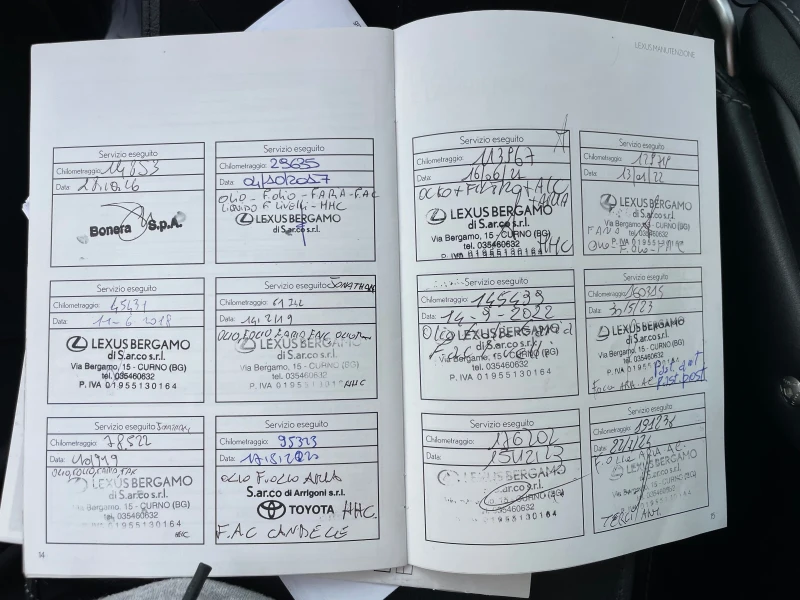 LEXUS MANUTENZIONE
Servizio eseguito
Chilometraggio: 14853
Data: 28.10.16
Bonera S.p.A.
Servizio eseguito
Chilometraggio: 29635
Data: 04/10/2017
OLIO - F.OLIO - FARIA - F.AC
LIQUIDO F LIVELLI - HHC
LEXUS BERGAMO
di S.ar.co s.r.l.
Servizio eseguito
Chilometraggio: 45431
Data: 11-6-2018
LEXUS BERGAMO
di S.ar.co s.r.l.
Via Bergamo, 15 - CURNO (BG)
tel. 035460632
P. IVA 01955130164
Servizio eseguito JONATHAN
Chilometraggio:
Data: 14/2/19
LEXUS BERGAMO
di S.ar.co s.r.l.
Via Bergamo, 15 - CURNO (BG)
tel. 035460632
P. IVA 01955130164
HHC
Servizio eseguito JONATHAN
Chilometraggio: 78522
Data:
LEXUS BERGAMO
di S.ar.co s.r.l.
Bergamo, 15 - CURNO (BG)
tel. 035460632
P. IVA 01955130164
HHC
Servizio eseguito
Chilometraggio: 95323
Data: 17.8.2020
OLIO F.OLIO ARIA
S.ar.co di Arrigoni s.r.l.
TOYOTA HHC.
F.AC CANDELE
14
Servizio eseguito
Chilometraggio: 113967
Data: 16/06/21
OLIO + FILTRO + A/C
+ ARIA
LEXUS BERGAMO
di S.ar.co s.r.l.
Via Bergamo, 15 - CURNO (BG)
tel. 035460632
HHC
Servizio eseguito
Chilometraggio:
Data: 13/01/22
LEXUS BERGAMO
di S.ar.co s.r.l.
Via Bergamo, 15 - CURNO (BG)
tel. 035460632
P. IVA 01955130164
Servizio eseguito
Chilometraggio: 145499
Data: 14-9-2022
Olio
LEXUS BERGAMO
di S.ar.co s.r.l.
Via Bergamo, 15 - CURNO (BG)
tel. 035460632
P. IVA 01955130164
Servizio eseguito
Chilometraggio: 160315
Data: 30/5/23
LEXUS BERGAMO
di S.ar.co s.r.l.
Via Bergamo, 15 - CURNO (BG)
tel. 035460632
Past. ant
Past. post
Servizio eseguito
Chilometraggio: 176202
Data: 15/12/23
LEXUS BERGAMO
S.ar.co s.r.l.
Bergamo, 15 - CURNO (BG)
tel. 035460632
P. IVA 01955130164
Servizio eseguito
Chilometraggio: 191231
Data:
F. OLIO ARIA AC.
LEXUS BERGAMO
di S.ar.co s.r.l.
Bergamo, 15 - CURNO (BG)
tel. 035460632
P. IVA 01955130164
15